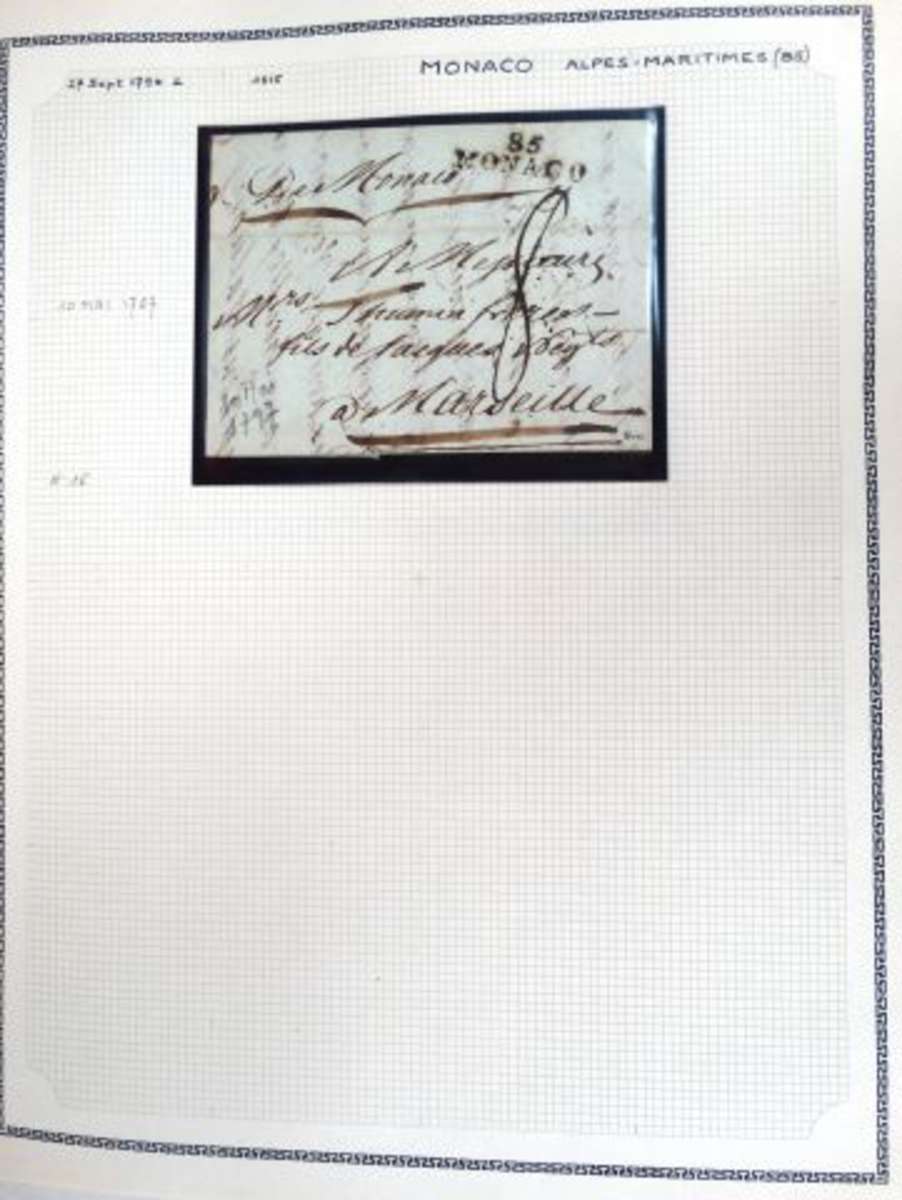 27 Sept 1794 1815
MONACO ALPES-MARITIMES (85)
85
MONACO
Monaco
8
A Messieurs
Mrs Thumin
fils de Jacques
à Marseille
10 MAI 1797
1797